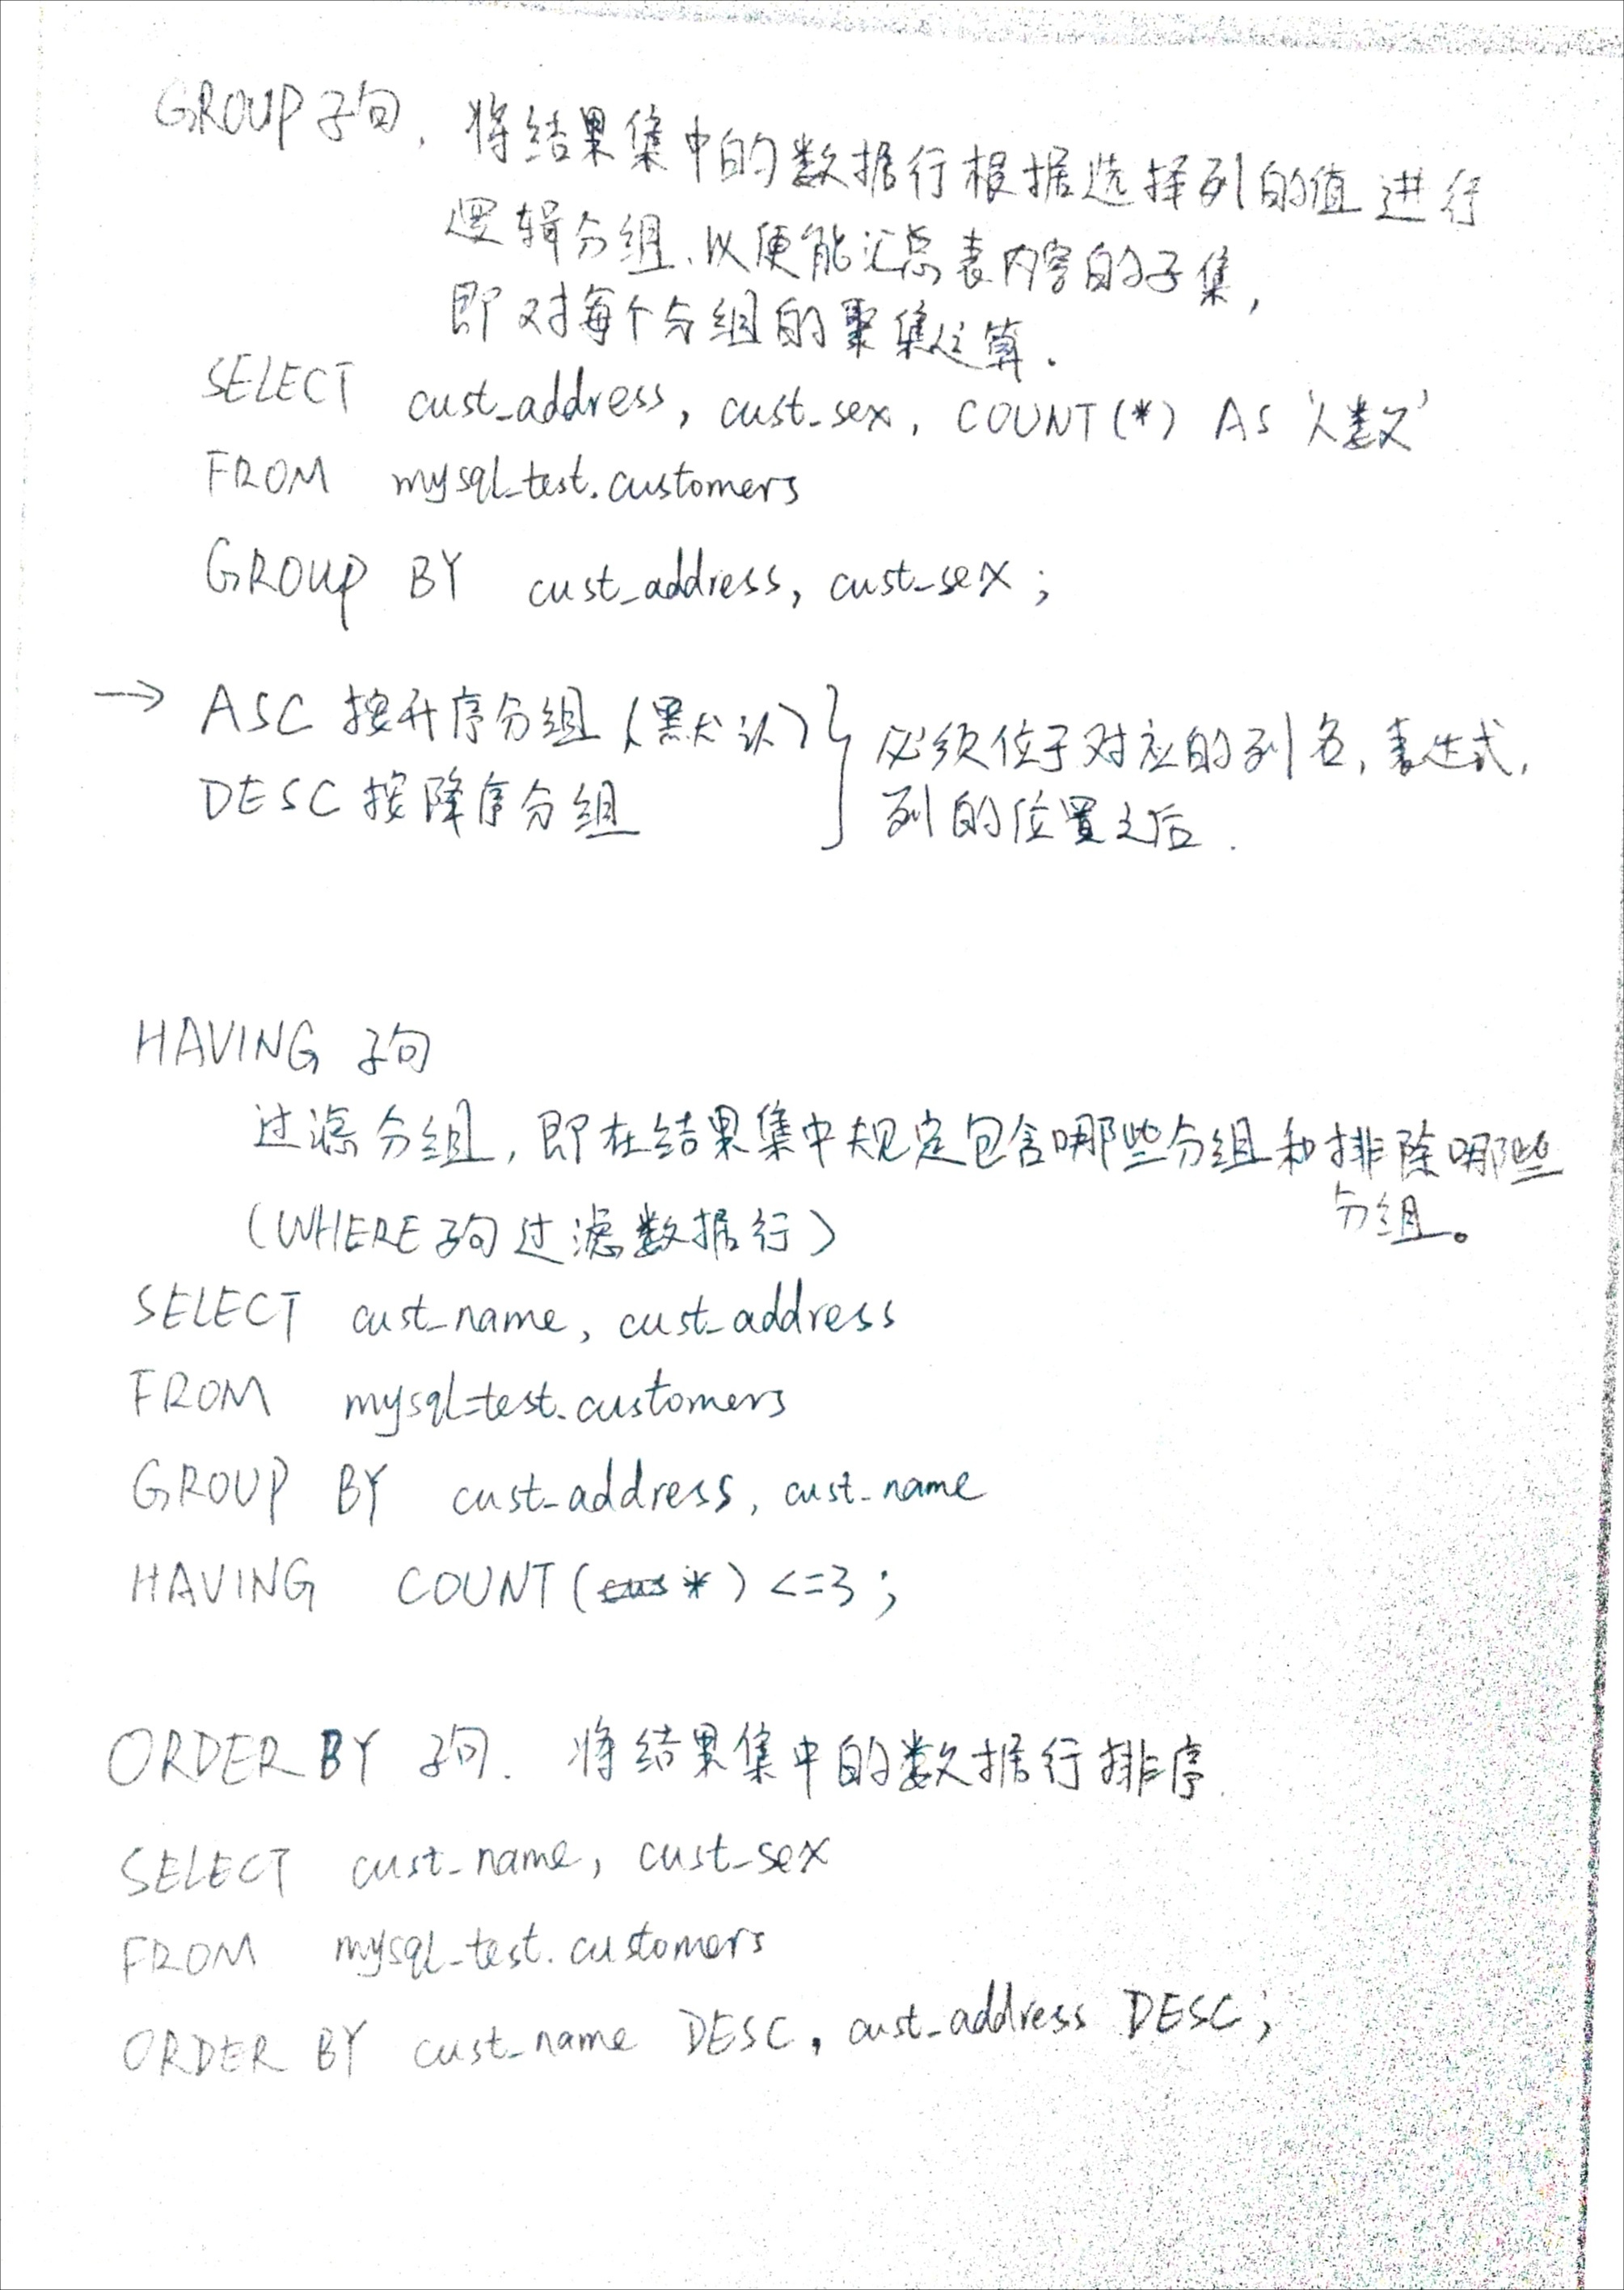 GROUP子句. 将结果集中的数据行根据选择列的值进行
逻辑分组、以便能汇总表内容的子集,
即对每个分组的聚集运算.
SELECT cust_address, cust_sex, COUNT(*) AS '人数'
FROM mysql_test.customers
GROUP BY cust_address, cust_sex;
→ ASC 按升序分组(默认)
DESC 按降序分组
必须位于对应的列名,表达式,
列的位置之后.
HAVING 子句
过滤分组,即在结果集中规定包含哪些分组和排除哪些
分组。
(WHERE子句过滤数据行)
SELECT cust_name, cust_address
FROM mysql_test.customers
GROUP BY cust_address, cust_name
HAVING COUNT(*) <=3;
ORDER BY 子句. 将结果集中的数据行排序.
SELECT cust_name, cust_sex
FROM mysql_test.customers
ORDER BY cust_name DESC, cust_address DESC;